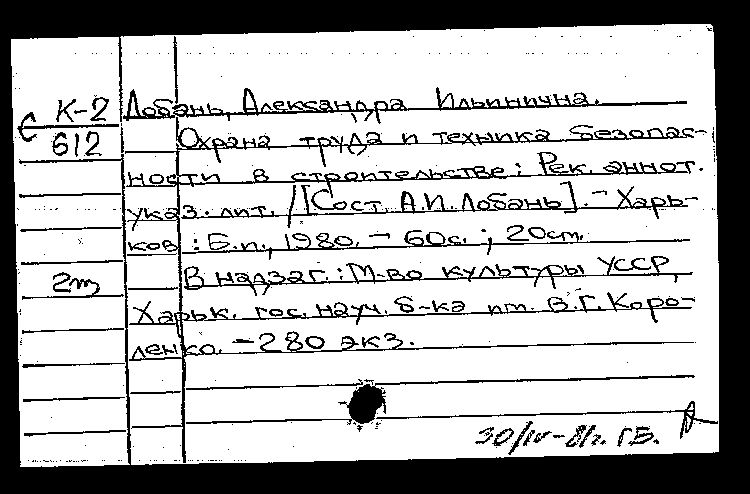 К-2 Лобань, Александра Ильинична.
612 Охрана труда и техника безопас-
ности в строительстве: Рек. аннот.
указ. лит. /[Сост. А.И. Лобань]. - Харь-
ков : Б.и., 1980. - 60с. ; 20см.
2т В надзаг.: М-во культуры УССР,
Харьк. гос. науч. б-ка им. В.Г. Коро-
ленко. - 280 экз.
30/IV-81г. ГБ.